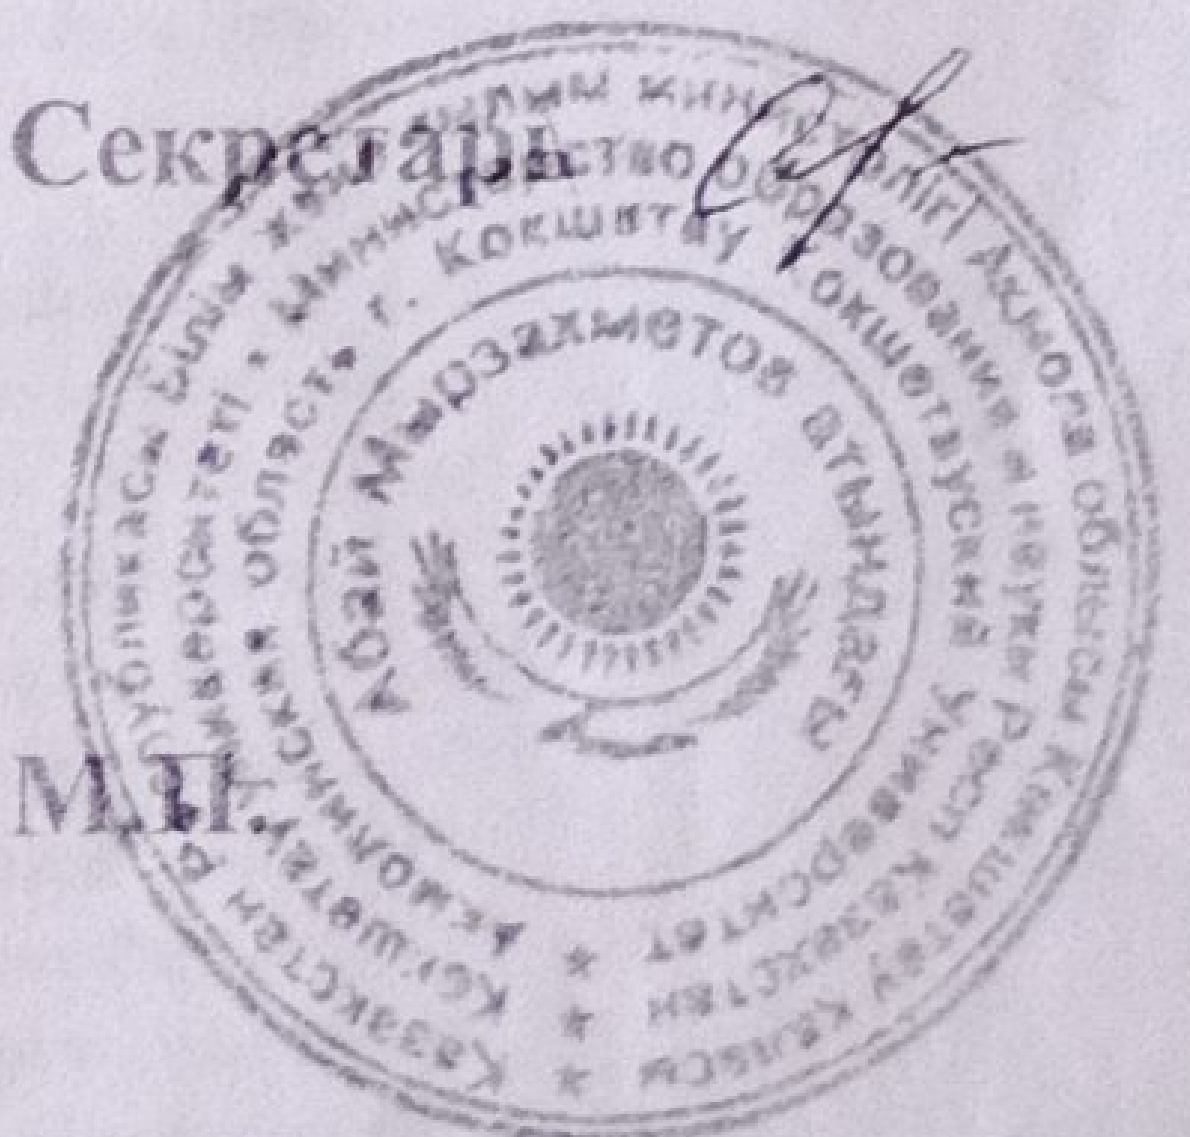 Секретарь
М.П.
Қазақстан Республикасы Білім және ғылым министрлігі Ақмола облысы Көкшетау қаласы
Көкшетау университеті * Министерство образования и науки Респ Казахстан
Акмолинская область, г. Кокшетау Кокшетауский университет
Абай Мырзахметов атындағы